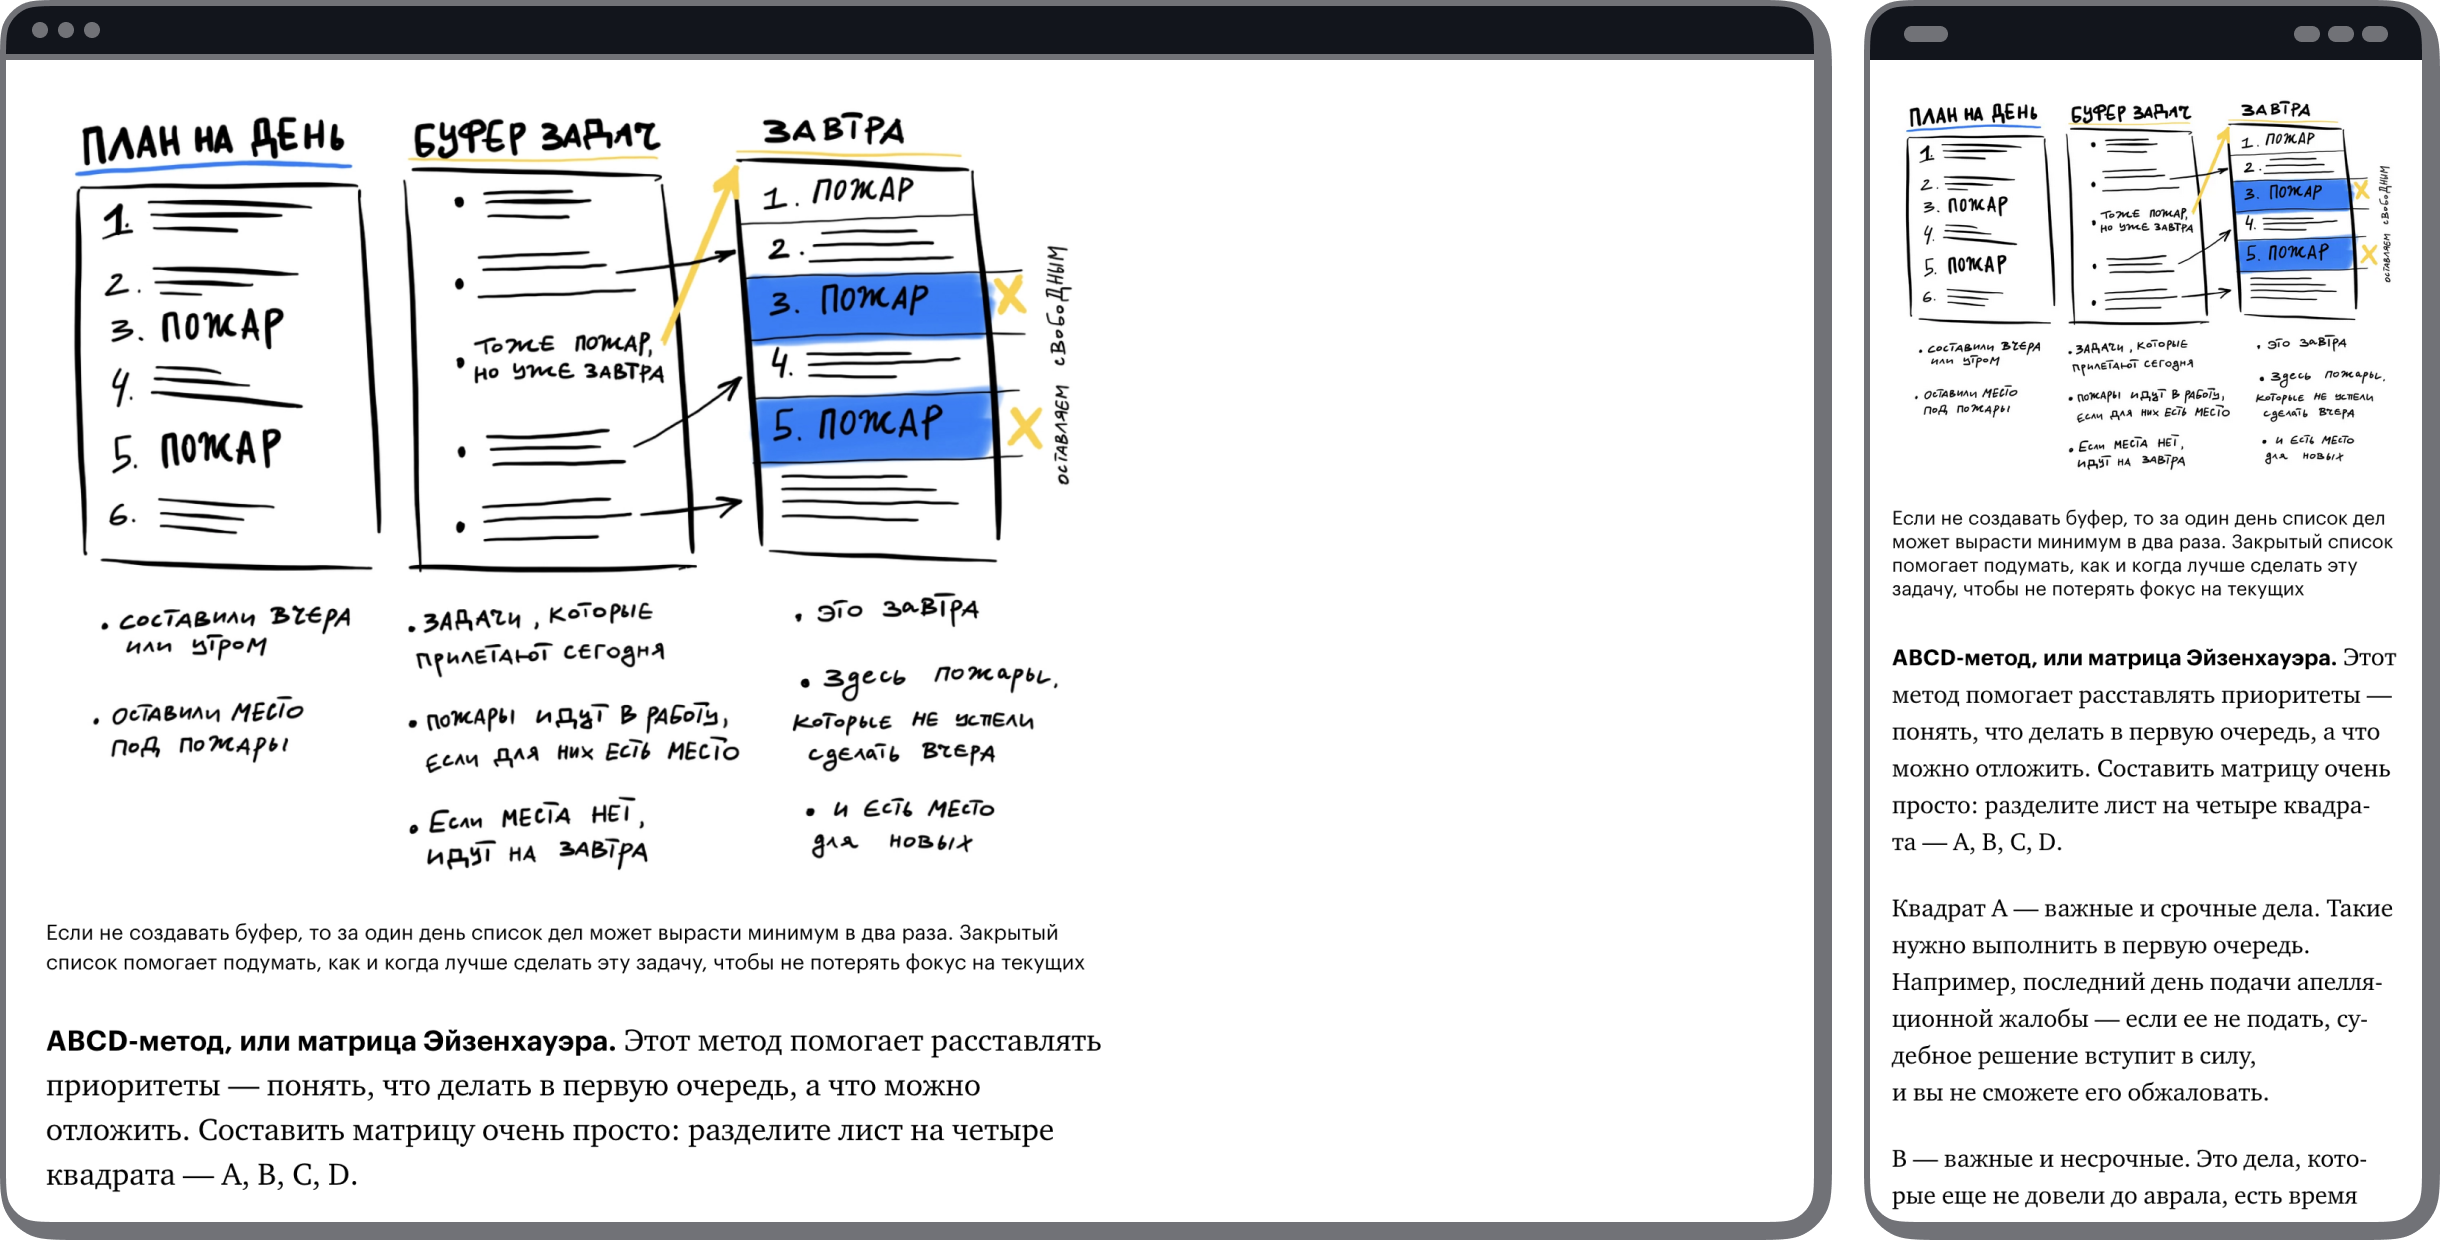 ПЛАН НА ДЕНЬ
1.
2.
3. ПОЖАР
4.
5. ПОЖАР
6.
• СОСТАВИЛИ ВЧЕРА
ИЛИ УТРОМ
• ОСТАВИЛИ МЕСТО
ПОД ПОЖАРЫ
БУФЕР ЗАДАЧ
• ТОЖЕ ПОЖАР,
НО УЖЕ ЗАВТРА
• ЗАДАЧИ, КОТОРЫЕ
ПРИЛЕТАЮТ СЕГОДНЯ
• ПОЖАРЫ ИДУТ В РАБОТУ,
ЕСЛИ ДЛЯ НИХ ЕСТЬ МЕСТО
• ЕСЛИ МЕСТА НЕТ,
ИДУТ НА ЗАВТРА
ЗАВТРА
1. ПОЖАР
2.
3. ПОЖАР
4.
5. ПОЖАР
ОСТАВЛЯЕМ СВОБОДНЫМ
• ЭТО ЗАВТРА
• ЗДЕСЬ ПОЖАРЫ,
КОТОРЫЕ НЕ УСПЕЛИ
СДЕЛАТЬ ВЧЕРА
• И ЕСТЬ МЕСТО
ДЛЯ НОВЫХ
Если не создавать буфер, то за один день список дел может вырасти минимум в два раза. Закрытый
список помогает подумать, как и когда лучше сделать эту задачу, чтобы не потерять фокус на текущих
ABCD-метод, или матрица Эйзенхауэра. Этот метод помогает расставлять
приоритеты — понять, что делать в первую очередь, а что можно
отложить. Составить матрицу очень просто: разделите лист на четыре
квадрата — A, B, C, D.
ПЛАН НА ДЕНЬ
1.
2.
3. ПОЖАР
4.
5. ПОЖАР
6.
• СОСТАВИЛИ ВЧЕРА
ИЛИ УТРОМ
• ОСТАВИЛИ МЕСТО
ПОД ПОЖАРЫ
БУФЕР ЗАДАЧ
• ТОЖЕ ПОЖАР,
НО УЖЕ ЗАВТРА
• ЗАДАЧИ, КОТОРЫЕ
ПРИЛЕТАЮТ СЕГОДНЯ
• ПОЖАРЫ ИДУТ В РАБОТУ,
ЕСЛИ ДЛЯ НИХ ЕСТЬ МЕСТО
• ЕСЛИ МЕСТА НЕТ,
ИДУТ НА ЗАВТРА
ЗАВТРА
1. ПОЖАР
2.
3. ПОЖАР
4.
5. ПОЖАР
ОСТАВЛЯЕМ СВОБОДНЫМ
• ЭТО ЗАВТРА
• ЗДЕСЬ ПОЖАРЫ,
КОТОРЫЕ НЕ УСПЕЛИ
СДЕЛАТЬ ВЧЕРА
• И ЕСТЬ МЕСТО
ДЛЯ НОВЫХ
Если не создавать буфер, то за один день список дел
может вырасти минимум в два раза. Закрытый список
помогает подумать, как и когда лучше сделать эту
задачу, чтобы не потерять фокус на текущих
ABCD-метод, или матрица Эйзенхауэра. Этот
метод помогает расставлять приоритеты —
понять, что делать в первую очередь, а что
можно отложить. Составить матрицу очень
просто: разделите лист на четыре квадра-
та — A, B, C, D.
Квадрат A — важные и срочные дела. Такие
нужно выполнить в первую очередь.
Например, последний день подачи апелля-
ционной жалобы — если ее не подать, су-
дебное решение вступит в силу,
и вы не сможете его обжаловать.
B — важные и несрочные. Это дела, кото-
рые еще не довели до аврала, есть время